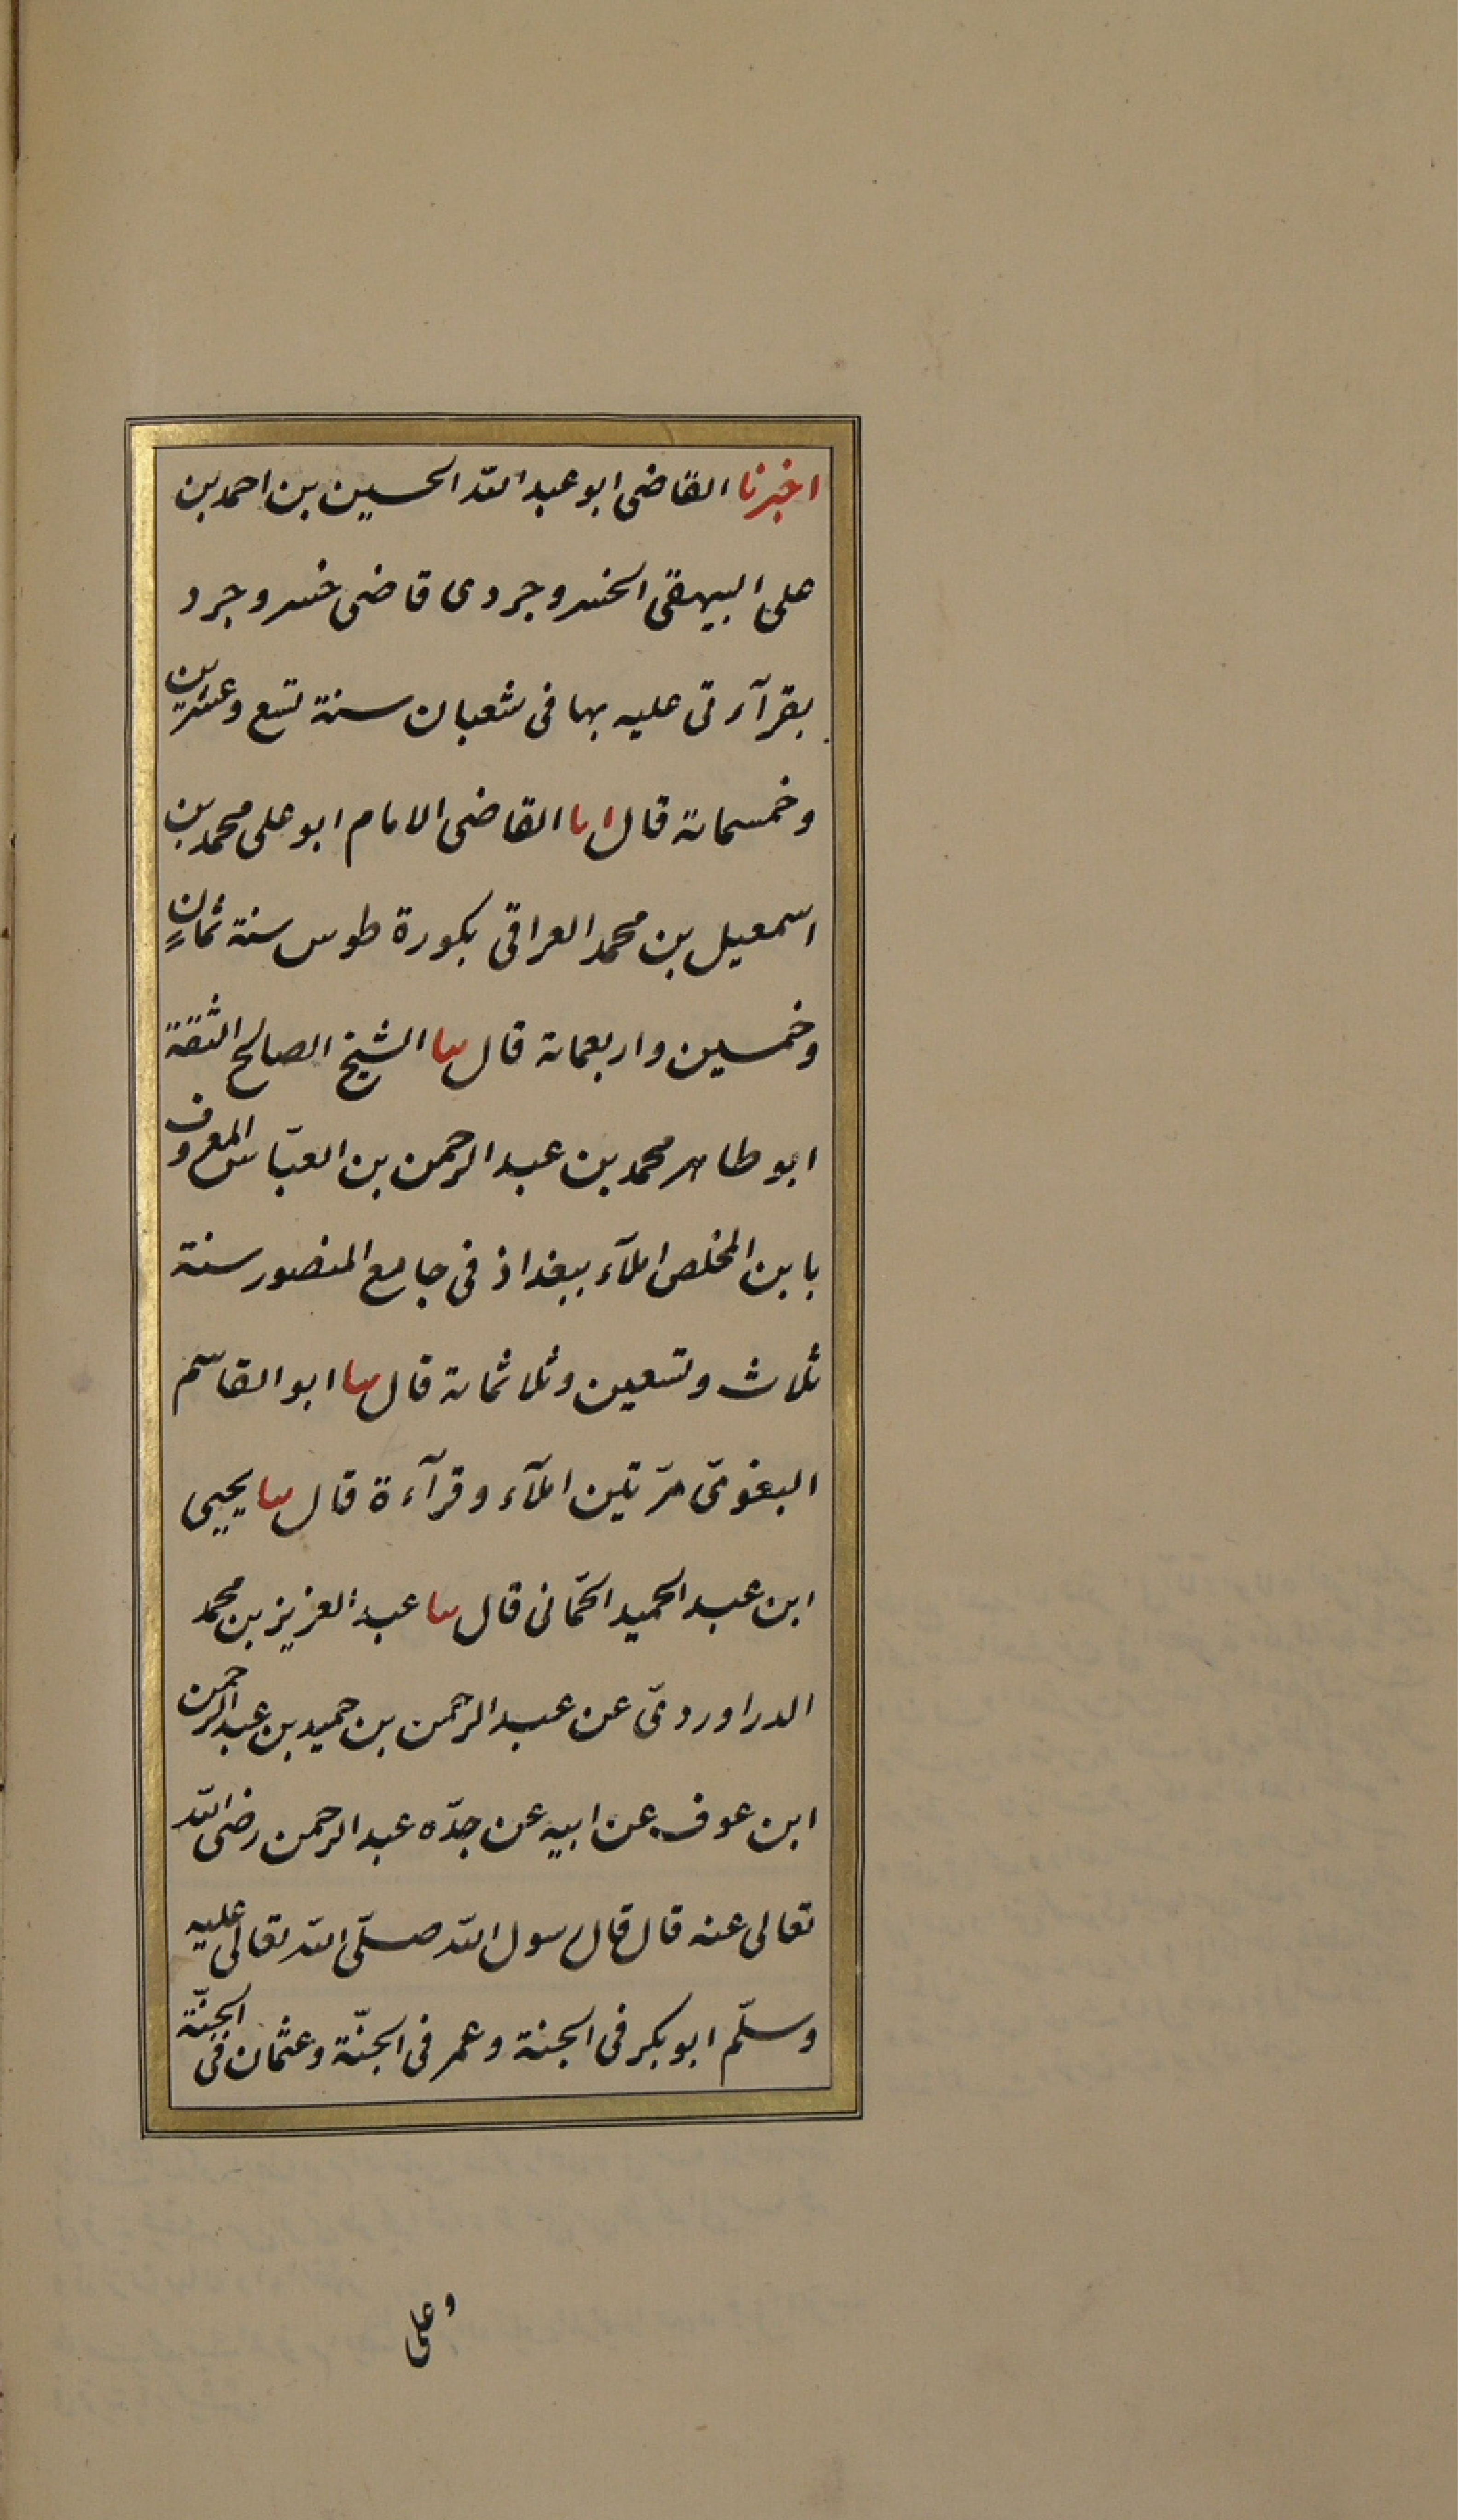 اخبرنا القاضى ابو عبد الله الحسين بن احمد بن
على البيهقى الخسروجردى قاضى خسروجرد
بقرآءتى عليه بها فى شعبان سنة تسع وعشرين
وخمسمائة قال انا القاضى الامام ابو على محمد بن
اسمعيل بن محمد العراقى بكورة طوس سنة ثمان
وخمسين واربعمائة قال ثنا الشيخ الصالح الثقة
ابو طاهر محمد بن عبد الرحمن بن العبّاس المعروف
بابن المخلص املآء ببغداذ فى جامع المنصور سنة
ثلاث وتسعين وثلاثمائة قال ثنا ابو القاسم
البغوىّ مرّتين املآء وقرآءة قال ثنا يحيى
ابن عبد الحميد الحمّانى قال ثنا عبد العزيز بن محمد
الدراوردىّ عن عبد الرحمن بن حميد بن عبد الرحمن
ابن عوف عن ابيه عن جدّه عبد الرحمن رضى الله
تعالى عنه قال قال رسول الله صلّى الله تعالى عليه
وسلّم ابو بكر فى الجنة وعمر فى الجنّة وعثمان فى الجنّة
وعلى